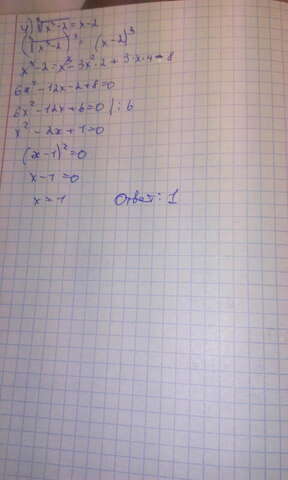 4) ∛x³-2 = x-2
(∛x³-2)³ = (x-2)³
x³-2 = x³ - 3x²·2 + 3·x·4 - 8
6x² - 12x - 2 + 8 = 0
6x² - 12x + 6 = 0 / : 6
x² - 2x + 1 = 0
(x-1)² = 0
x - 1 = 0
x = 1 Ответ: 1